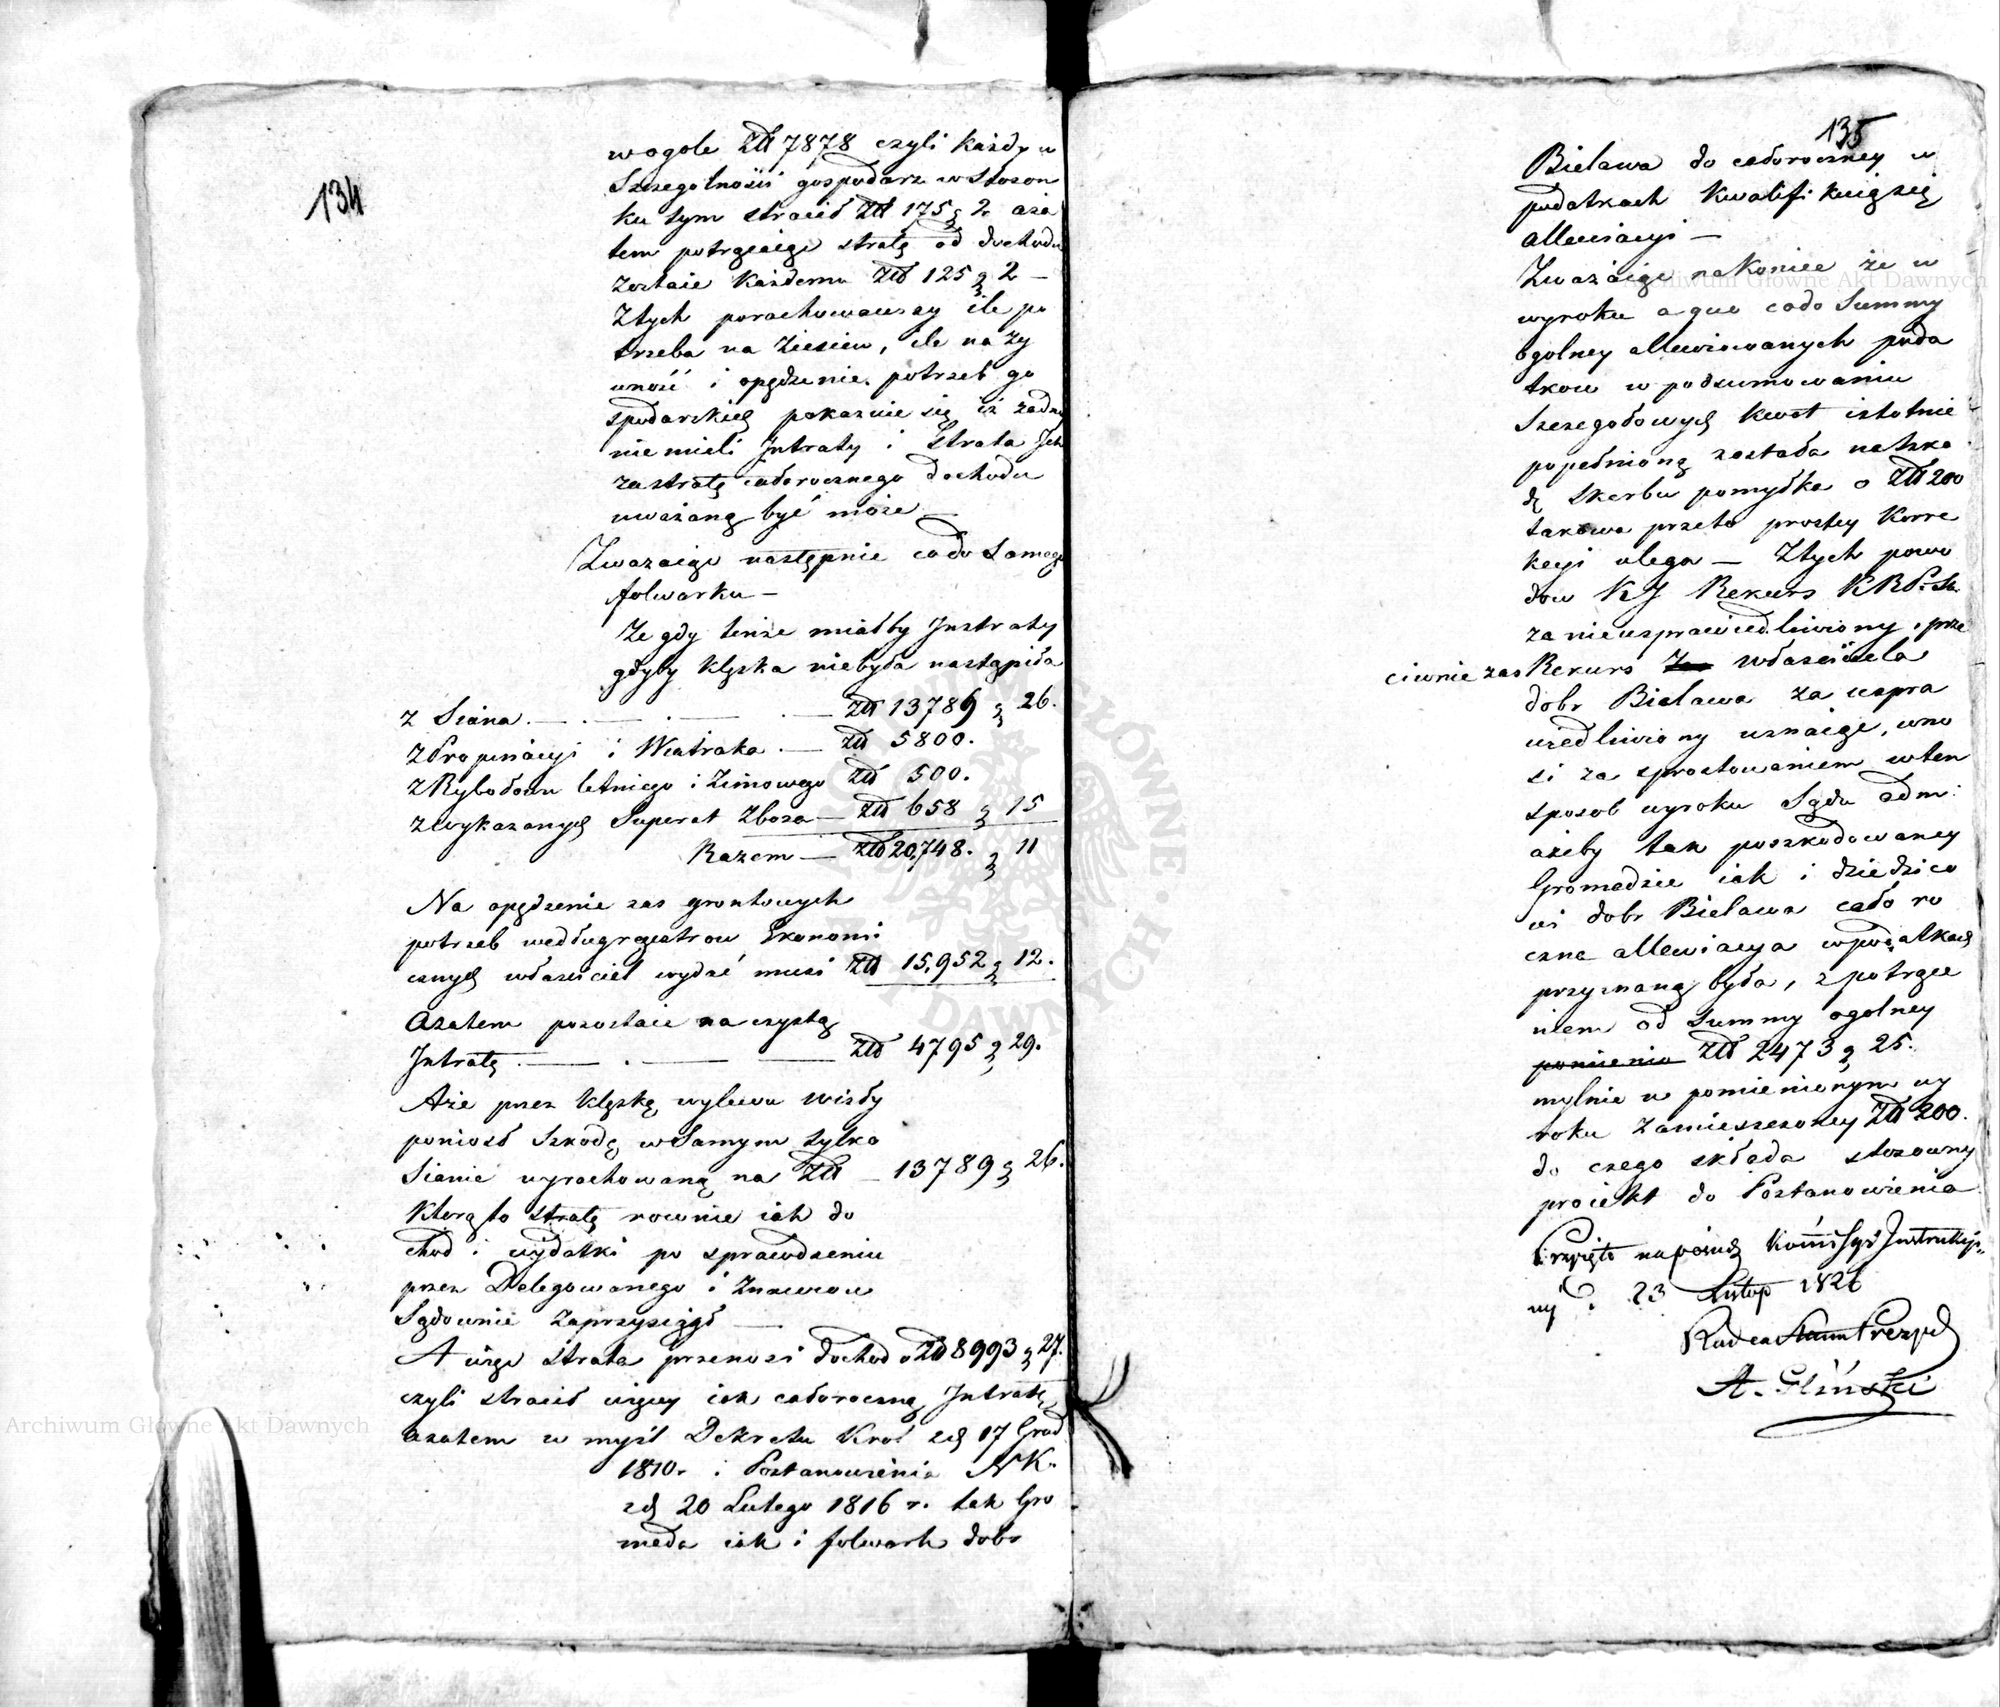 134
wogole Złł 7878 czyli każdy w
Szczegolności gospodarz w Stoson
ku tym stracił Złł 175 g 2 aza
tem potrąciaiąc stratę od dochodu
zostaie Każdemu Złł 125 g 2 —
Ztych porachowawszy ile po
trzeba na Zasiew, ile na ży
wność i opędzenie potrzeb go
spodarskich pokazuie się iż żadney
nie mieli Jntraty i Strata Jch
za stratę całorocznego dochodu
uważaną być może —
Zważaiąc następnie co do Samego
folwarku —
Że gdy tenże miałby Jntraty
gdyby klęska niebyła nastąpiła
z Siana — Złł 13789 g 26.
z Propinacyi i Wiatraka — Złł 5800.
z Rybołowu letniego i Zimowego Złł 500.
z wykazanych Superat Zboża — Złł 658 g 15
Razem — Złł 20,748. g 11
Na opędzenie zas grontowych
potrzeb według regestrow Ekonomi
cznych właściciel wydać musi Złł 15,952 g 12.
Azatem pozostaie na czystą
Jntratę — Złł 4795 g 29.
Aże przez klęskę wylewu Wisły
poniosł Szkodę w Samym tylko
Sianie wyrachowaną na Złł — 13789 g 26.
Ktorą to stratę rownie iak do
chod i wydatki po sprawdzeniu
przez Delegowanego i Znawcow
Sądownie Zaprzysiągł —
A więc strata przenosi dochod o Złł 8993 g 27.
czyli stracił więcey iak całoroczną Jntratę
azatem w myśl Dekretu Krol zd 17 Grud
1810 r. i Postanowienia NK.
zd 20 Lutego 1816 r. tak Gro
mada iak i folwark dobr
135
Bielawa do całoroczney w
podatkach kwalifikuią się
allewiacyi —
Zważaiąc nakoniec że w
wyroku a quo co do Summy
ogolney allewiowanych poda
tkow w podsumowaniu
Szczegołowych kwot istotnie
popełnioną została na szko
dę skarbu pomyłka o Złł 200
takowa przeto prostey Korre
kcyi ulega — Ztych powo
dow KJ Rekurs KRP. Sk.
za nieusprawiedliwiony, prze
ciwnie zas Rekurs właściciela
dobr Bielawa za uspra
wiedliwiony uznaiąc, wno
si za sprostowaniem w ten
sposob wyroku Sądu adm:
ażeby tak poszkodowaney
Gromadzie iak i dziedzico
wi dobr Bielawa cało ro
czna allewiacya w podatkach
przyznaną była, z potrące
niem od Summy ogolney
pomienio Złł 2473 g 25.
mylnie w pomienionym wy
roku Zamieszczoney Złł 200.
do czego składa stosowny
proiekt do Postanowienia
Przyięto na posiedz Kommissyi Jnstrukcyi-
ny d. 23 Listop 1826
Radca Stanu Prezyd
A. Gliński
Archiwum Główne Akt Dawnych
Archiwum Główne Akt Dawnych